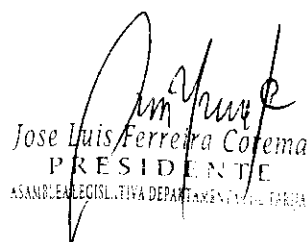 Jose Luis Ferreira Corema
PRESIDENTE
ASAMBLEA LEGISLATIVA DEPARTAMENTAL TARIJA